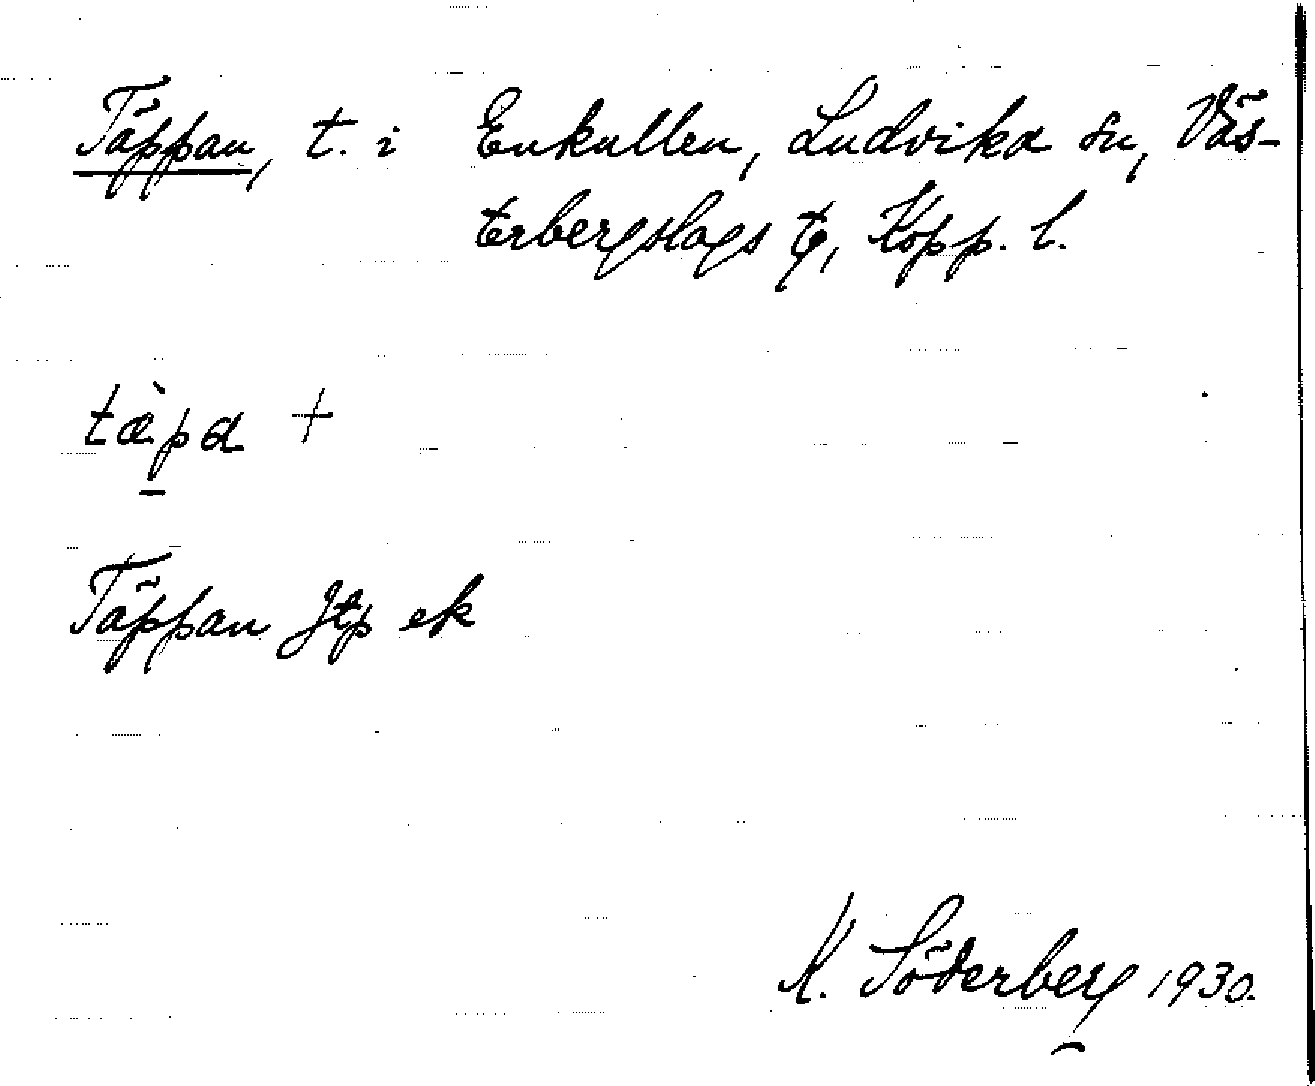 Täppan, t. i Enkullen, Ludvika sn, Väs-
terbergslags tg, Kopp. l.
tæ̀pa +
Täppan Jtp ek
K. Söderberg 1930.